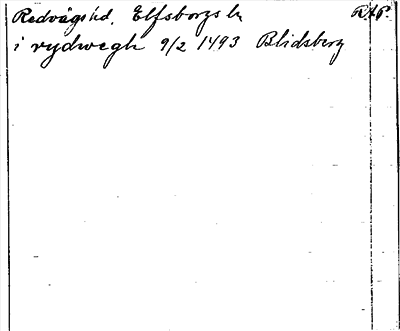 Redvägs hd, Elfsborgs ln RAP.
i rydwegh 9/2 1493 Blidsberg